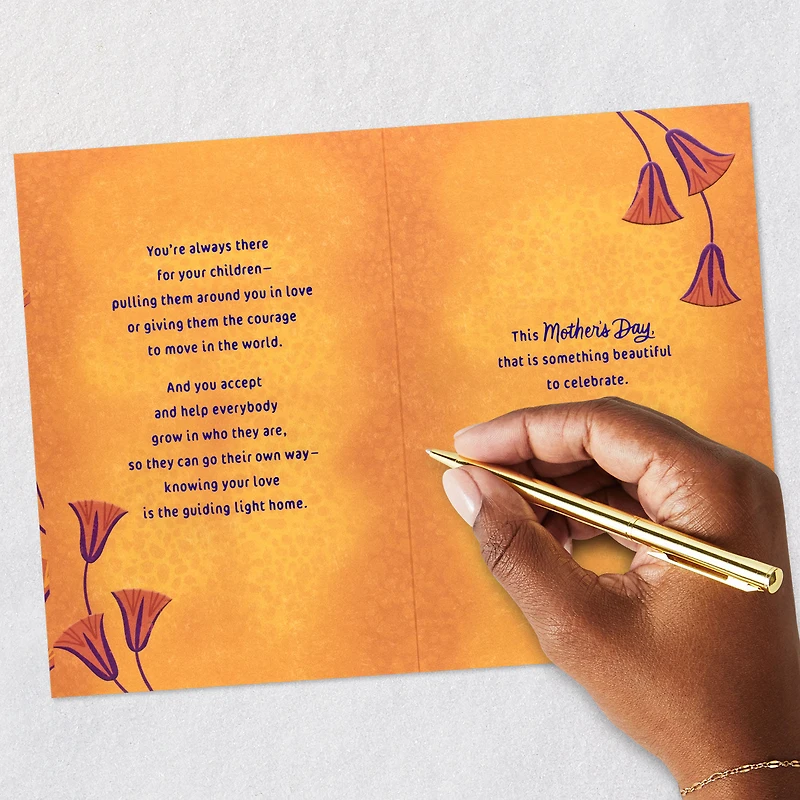 You're always there
for your children–
pulling them around you in love
or giving them the courage
to move in the world.
And you accept
and help everybody
grow in who they are,
so they can go their own way–
knowing your love
is the guiding light home.
This Mother's Day,
that is something beautiful
to celebrate.